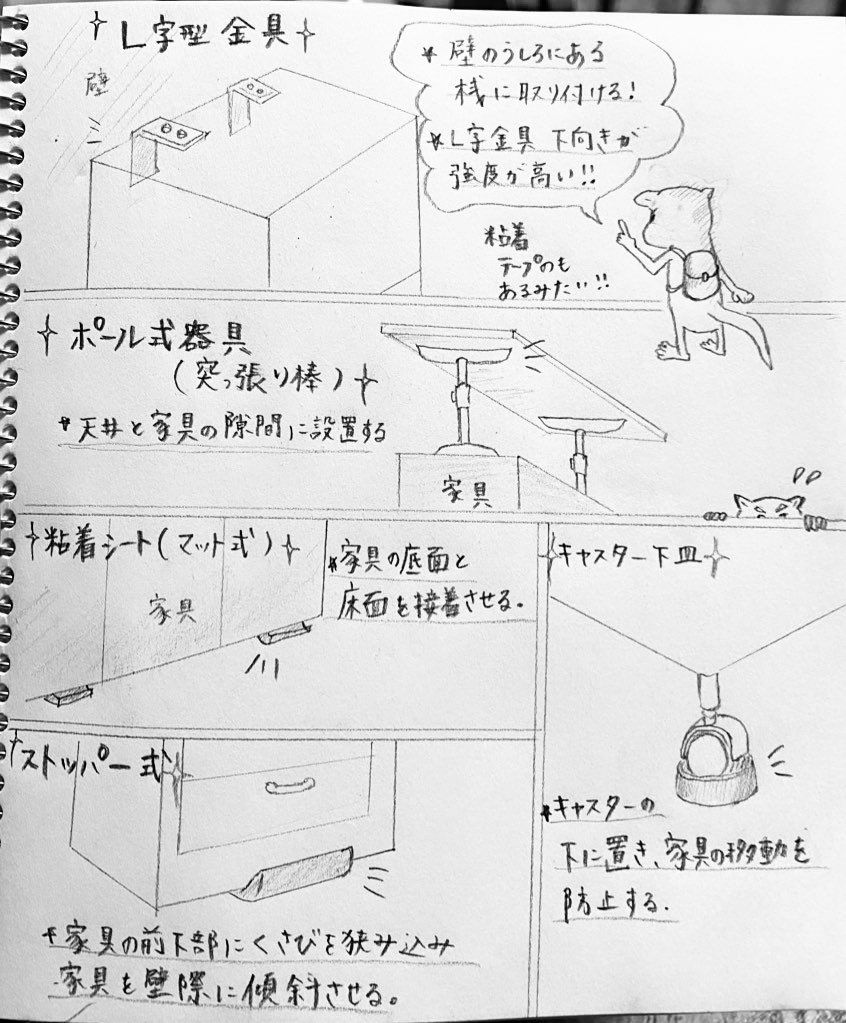 L字型金具
壁
* 壁のうしろにある
桟に取り付ける!
* L字金具 下向きが
強度が高い!!
粘着
テープのも
あるみたい!!
ポール式器具
(突っ張り棒)
* 天井と家具の隙間に設置する
家具
粘着シート(マット式)
家具
* 家具の底面と
床面を接着させる。
キャスター下皿
* キャスターの
下に置き、家具の移動を
防止する.
ストッパー式
* 家具の前下部にくさびを狭み込み
家具を壁際に傾斜させる。